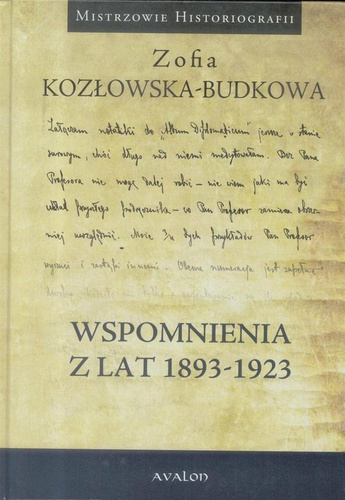 Mistrzowie Historiografii
Zofia
KOZŁOWSKA-BUDKOWA
Załączam notatki do „Album Diplomaticum" jeszcze w stanie
surowym, choć długo nad niemi medytowałam. Bez Pana
Profesora nie mogę dalej robić – nie wiem jaki ma być
układ przyszłego podręcznika – co Pan Profesor zamierza obszer-
niej uwzględnić. Może z tych przykładów Pan Profesor
wyrzuci i zastąpi innemi – Obecna numeracja jest zupełnie
WSPOMNIENIA
Z LAT 1893-1923
AVALON